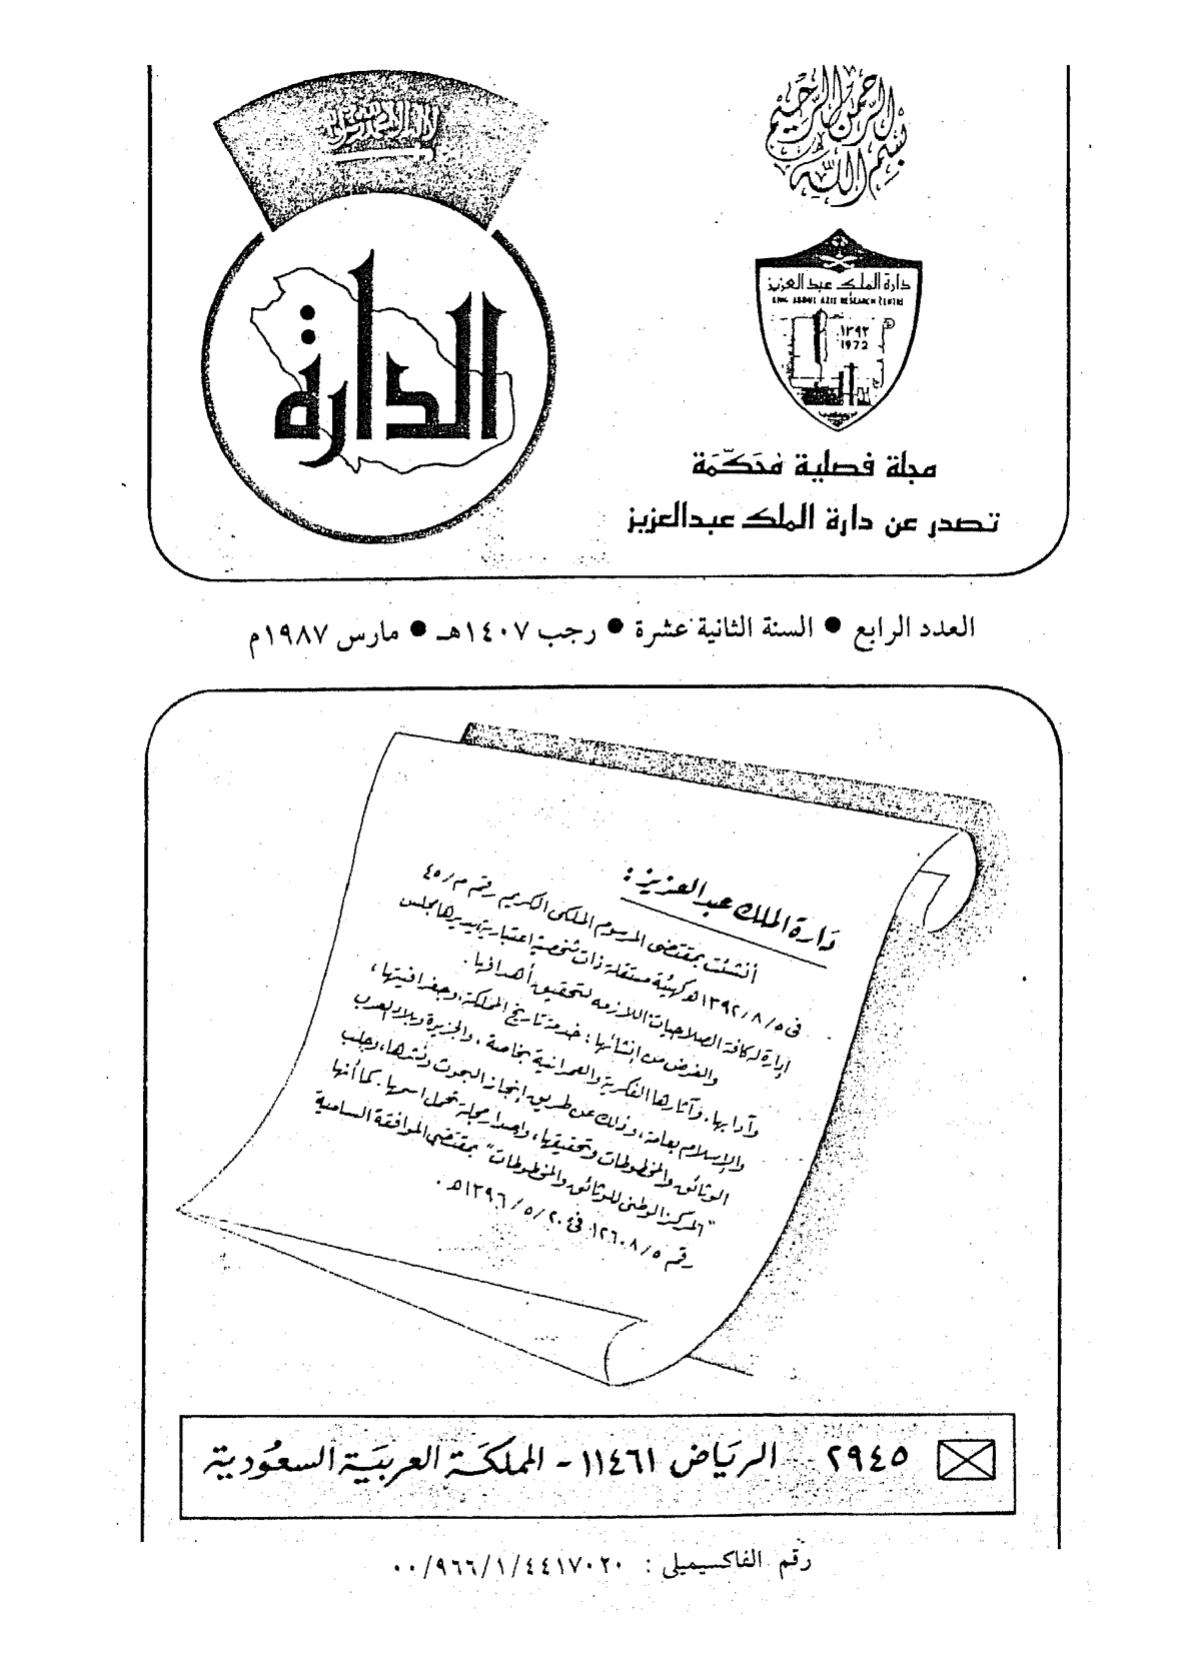 بسم الله الرحمن الرحيم
لا إله إلا الله محمد رسول الله
الدارة
دارة الملك عبدالعزيز
KING ABDUL AZIZ RESEARCH CENTRE
١٣٩٢
1972
مجلة فصلية مُحَكَّمَة
تصدر عن دارة الملك عبدالعزيز
العدد الرابع ● السنة الثانية عشرة ● رجب ١٤٠٧هـ ● مارس ١٩٨٧م
دَارة الملك عبد العزيز :
أنشئت بمقتضى المرسوم الملكي الكريم رقم م/٤٥
في ١٣٩٢/٨/٥هـ كهيئة مستقلة ذات شخصية اعتبارية يديرها مجلس
إدارة له كافة الصلاحيات اللازمه لتحقيق أهدافها .
والغرض من إنشائها : خدمة تاريخ المملكة، وجغرافيتها ،
وآدابها، وآثارها الفكرية والعمرانية بخاصة ، والجزيرة وبلاد العرب
والإسلام بعامة، وذلك عن طريق إنجاز البحوث ونشرها، وجلب
الوثائق والمخطوطات وتحقيقها، وإصدار مجلة تحمل اسمها. كما أنها
"المركز الوطني للوثائق والمخطوطات" بمقتضى الموافقة السامية
رقم ١٢٦٠٨/٥ في ١٣٩٦/٥/٢٠هـ .
٢٩٤٥ - الرياض ١١٤٦١ - المملكة العربية السعودية
رقم الفاكسيميلي : ٠٠/٩٦٦/١/٤٤١٧٠٢٠